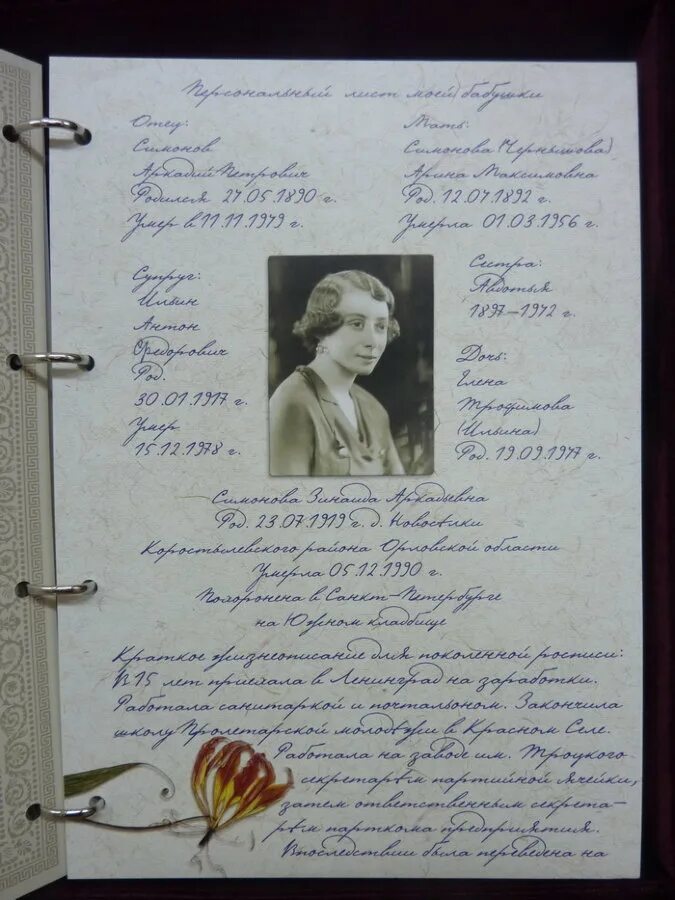 Персональный лист моей бабушки
Отец:
Симонов
Аркадий Петрович
Родился 27.05.1890 г.
Умер в 11.11.1979 г.
Мать:
Симонова (Чернышова)
Арина Максимовна
Род. 12.07.1892 г.
Умерла 01.03.1956 г.
Супруг:
Ильин
Антон
Федорович
Род.
30.01.1917 г.
Умер
15.12.1978 г.
Сестра:
Авдотья
1897–1972 г.
Дочь:
Елена
Трофимова
(Ильина)
Род. 19.09.1977 г.
Симонова Зинаида Аркадьевна
Род. 23.07.1919 г. д. Новосёлки
Коростылевского района Орловской области
Умерла 05.12.1990 г.
Похоронена в Санкт-Петербурге
на Южном кладбище
Краткое жизнеописание для поколенной росписи:
В 15 лет приехала в Ленинград на заработки.
Работала санитаркой и почтальоном. Закончила
школу Пролетарской молодёжи в Красном Селе.
Работала на заводе им. Троцкого
секретарём партийной ячейки,
затем ответственным секрета-
рём парткома предприятия.
Впоследствии была переведена на